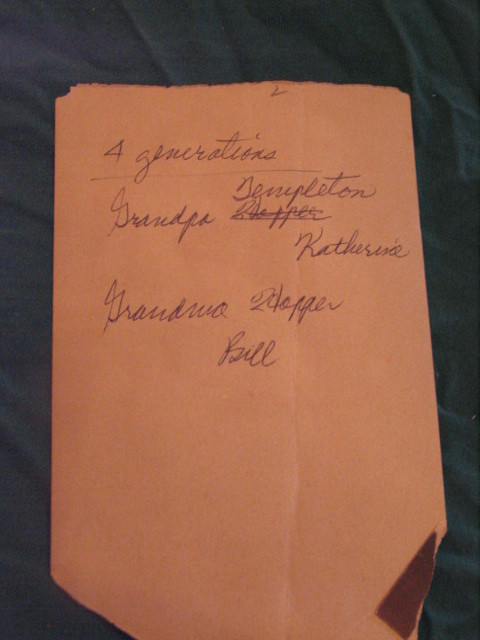 2
4 generations
Templeton
Grandpa Hopper
Katherine
Grandma Hopper
Bill